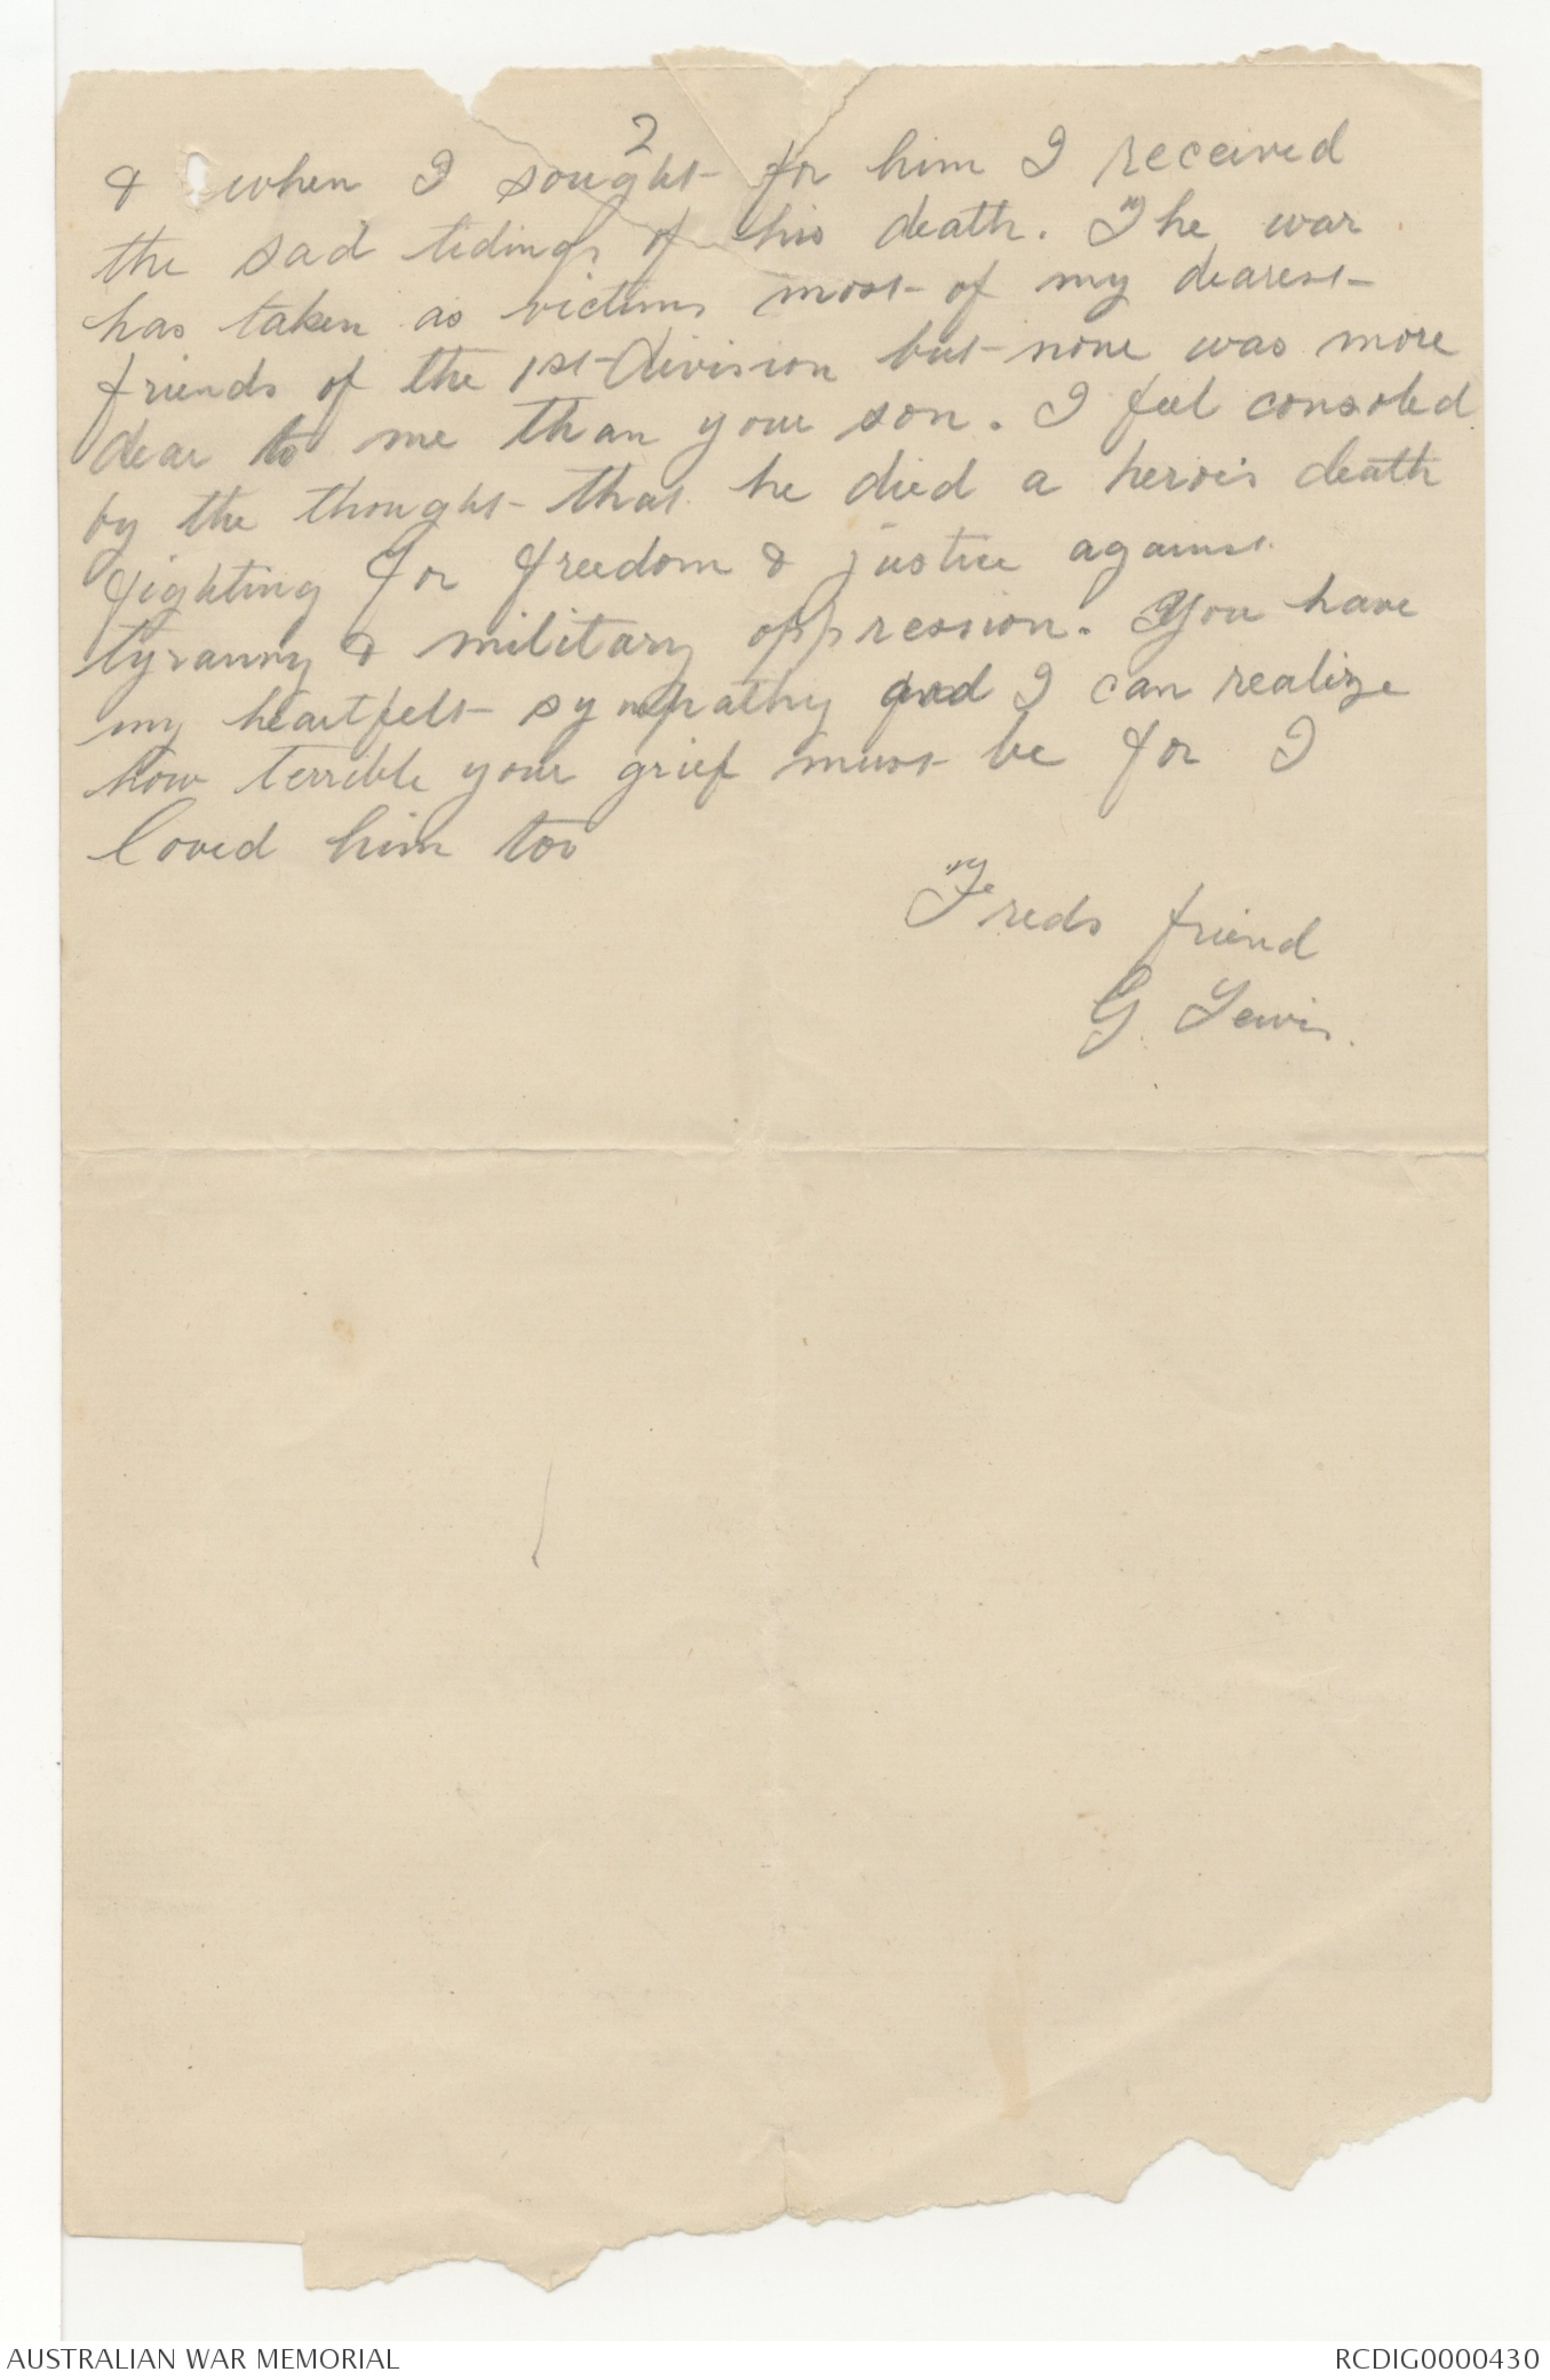 2
& when I sought for him I received
the sad tidings of his death. The war
has taken as victims most of my dearest
friends of the 1st Division but none was more
dear to me than your son. I feel consoled
by the thought that he died a hero's death
fighting for freedom & justice against
tyranny & military oppression. You have
my heartfelt sympathy and I can realize
how terrible your grief must be for I
loved him too
Freds friend
G. Lewis.
AUSTRALIAN WAR MEMORIAL
RCDIG0000430